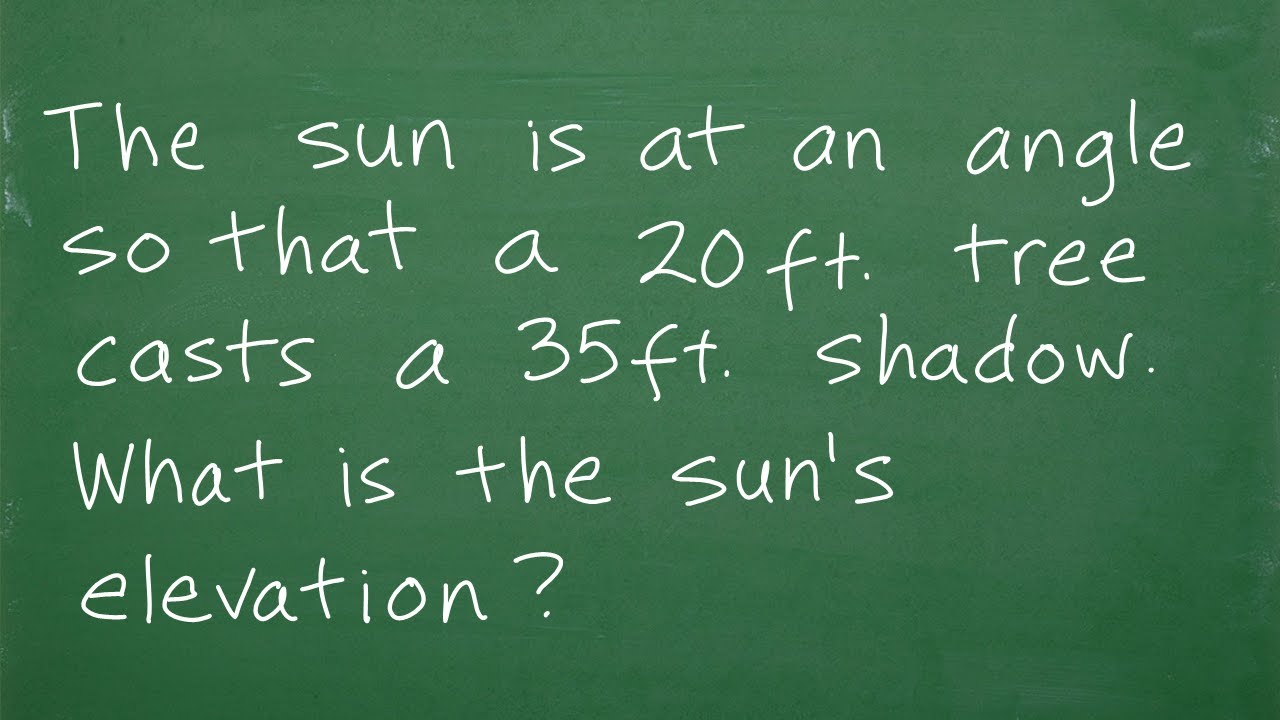 The sun is at an angle
so that a 20ft. tree
casts a 35ft. shadow.
What is the sun's
elevation?